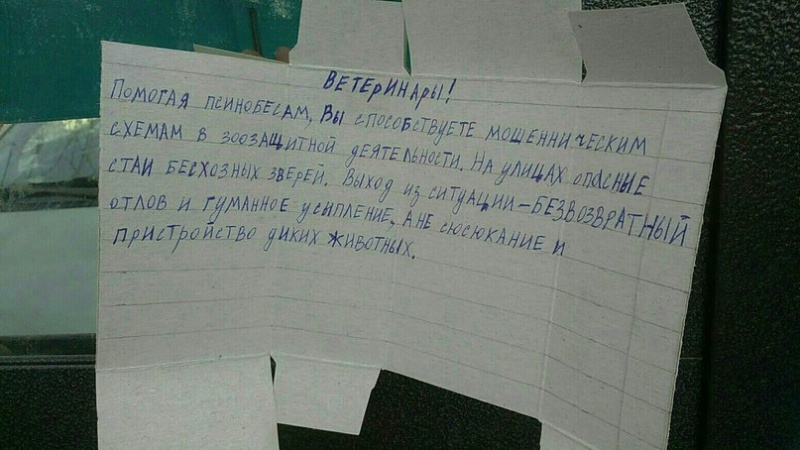 ВЕТЕРИНАРЫ!
ПОМОГАЯ ПСИНОБЕСАМ, ВЫ СПОСОБСТВУЕТЕ МОШЕННИЧЕСКИМ
СХЕМАМ В ЗООЗАЩИТНОЙ ДЕЯТЕЛЬНОСТИ. НА УЛИЦАХ ОПАСНЫЕ
СТАИ БЕСХОЗНЫХ ЗВЕРЕЙ. ВЫХОД ИЗ СИТУАЦИИ - БЕЗВОЗВРАТНЫЙ
ОТЛОВ И ГУМАННОЕ УСЫПЛЕНИЕ, А НЕ СЮСЮКАНИЕ И
ПРИСТРОЙСТВО ДИКИХ ЖИВОТНЫХ.